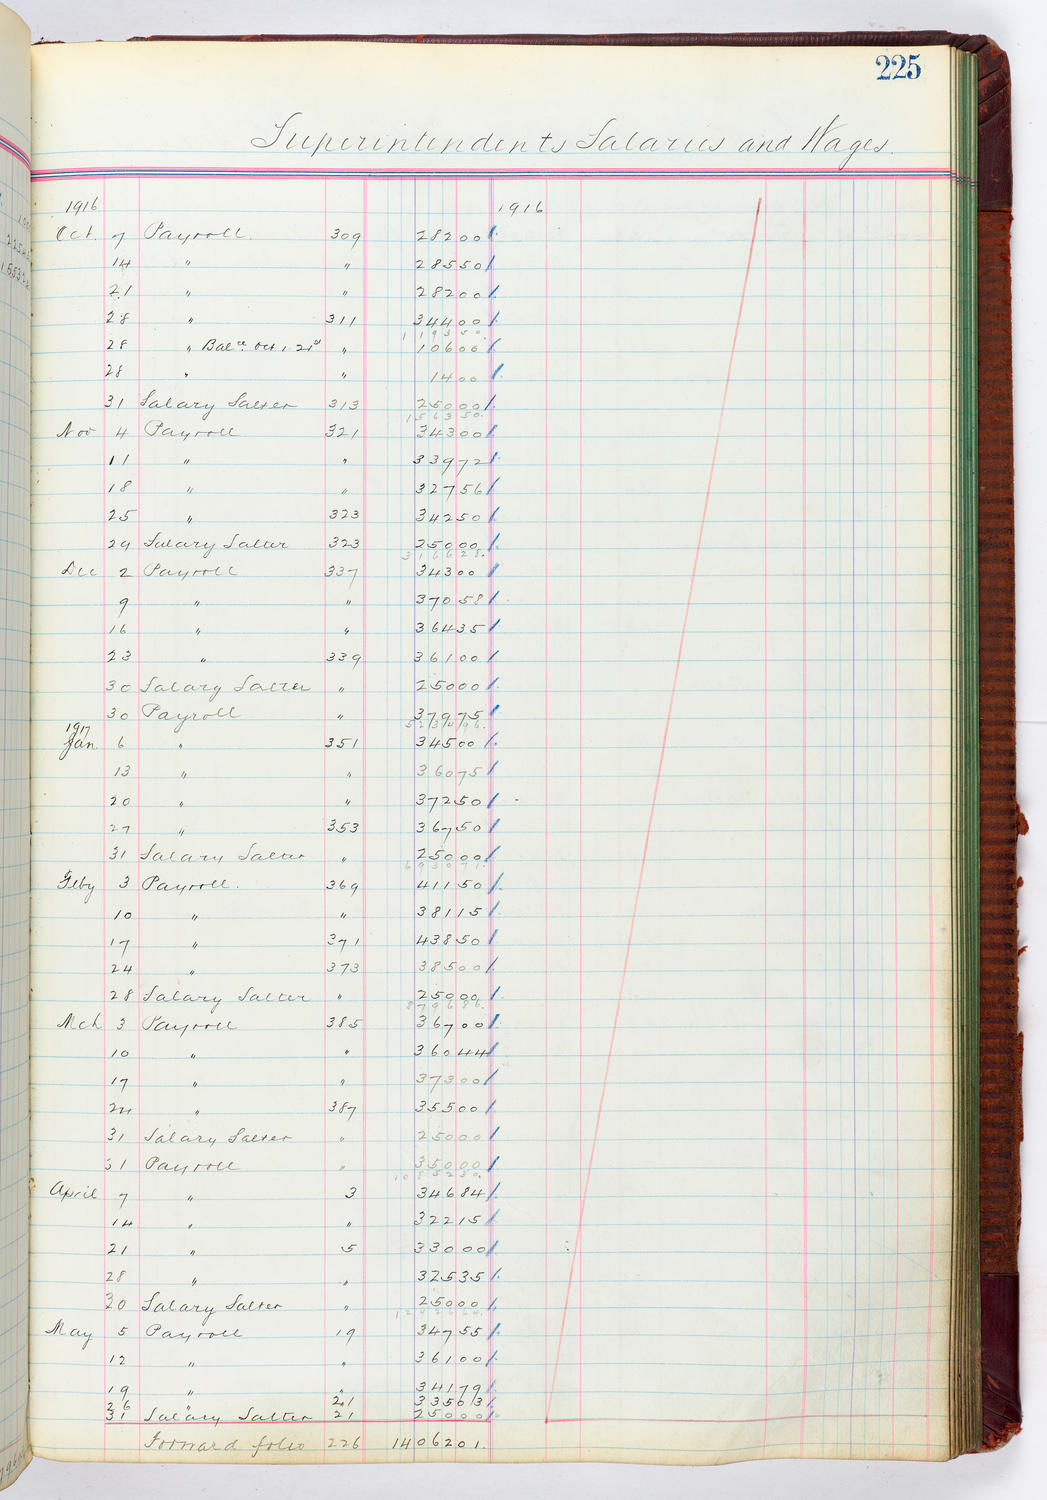 225
Superintendents Salaries and Wages.
1916 1916
Oct. 7 Payroll. 309 28200
14 " " 28550
21 " " 28200
28 " 311 34400
119350.
28 " Balce. Oct 1-21st " 10600
28 " " 1400
31 Salary Salter 313 25000
156350.
Nov 4 Payroll 321 34300
11 " " 33972
18 " " 32756
25 " 323 34250
29 Salary Salter 323 25000
316628.
Dec 2 Payroll 337 34300
9 " " 37058
16 " " 36435
23 " 339 36100
30 Salary Salter " 25000
30 Payroll " 37975
523496.
1917
Jan. 6 " 351 34500
13 " " 36075
20 " " 37250
27 " 353 36750
31 Salary Salter " 25000
693071.
Feby 3 Payroll. 369 41150
10 " " 38115
17 " 371 43850
24 " 373 38500
28 Salary Salter " 25000
879686.
Mch 3 Payroll 385 36700
10 " " 36044
17 " " 37300
24 " 387 35500
31 Salary Salter " 25000
31 Payroll " 35000
1085230.
April 7 " 3 34684
14 " " 32215
21 " 5 33000
28 " " 32535
30 Salary Salter " 25000
1242664.
May 5 Payroll 19 34755
12 " " 36100
19 " " 34179
26 " 21 33503
31 Salary Salter 21 25000
Forward folio 226 1406201.